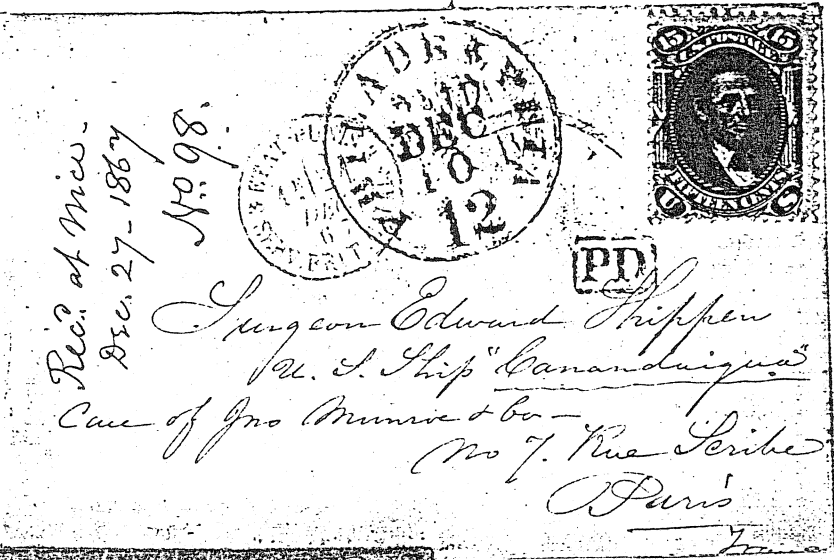 Rec'd. at Nice -
Dec. 27 - 1867
No. 98.
PHILADELPHIA
DEC
10
12
15 U.S. POSTAGE 15
FIFTEEN CENTS
U S
PD
Surgeon Edward Shippen
U. S. Ship "Canandaigua"
Care of Jno Munroe & Co -
No 7. Rue Scribe
Paris